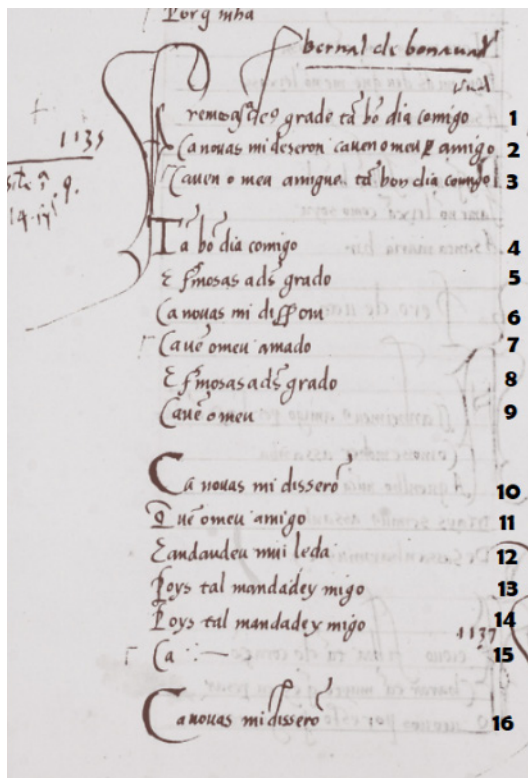 Porq̄ mha
bernal de bonaual
1135
remosą a de9 grado tā bō dia comigo 1
Ca nouas mi deseron cauen o meu amigo 2
Cauen o meu amigue tā bon dia comigo 3
14
Tā bō dia comigo 4
E fʼmosas ads̄ grado 5
Ca nouas mi disserom 6
Ca uē o meu amado 7
E fʼmosas a ds̄ grado 8
Ca uē o meu 9
Ca nouas mi disserō 10
Q̄ uē o meu amigo 11
E andandeu mui leda 12
Poys tal mandadey migo 13
Poys tal mandadey migo 14
1137
Ca ·:— 15
Ca nouas mi disserō 16